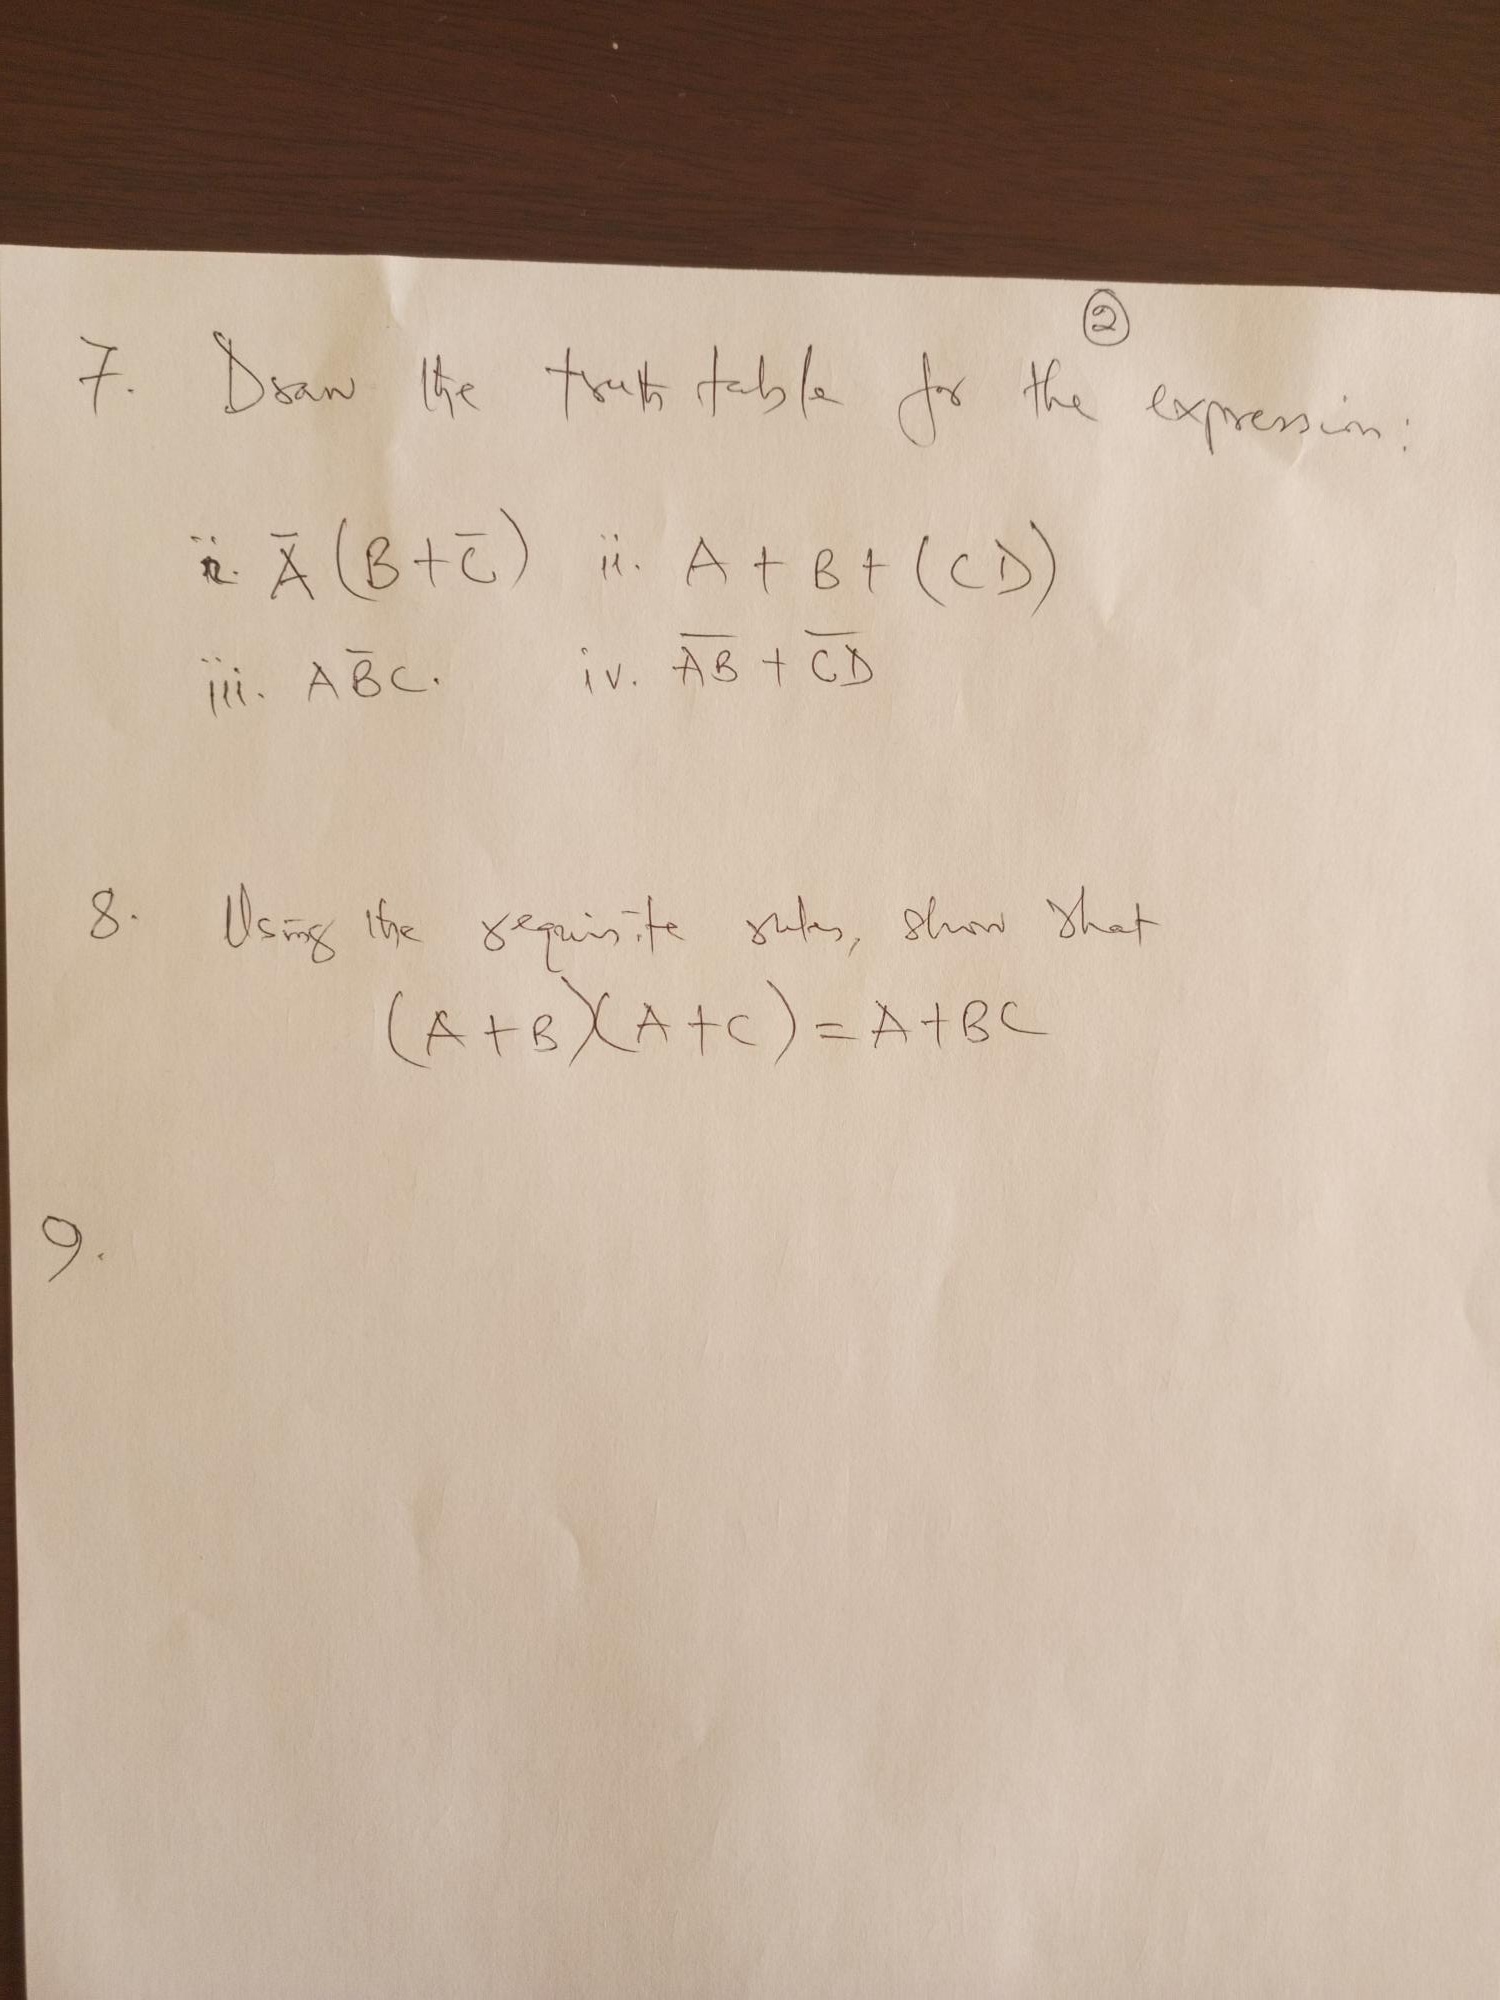 ②
7. Draw the truth table for the expression:
i. A̅ (B+C̅) ii. A + B + (CD)
iii. AB̅C. iv. A̅B̅ + C̅D̅
8. Using the requisite rules, show that
(A+B)(A+C) = A+BC
9.